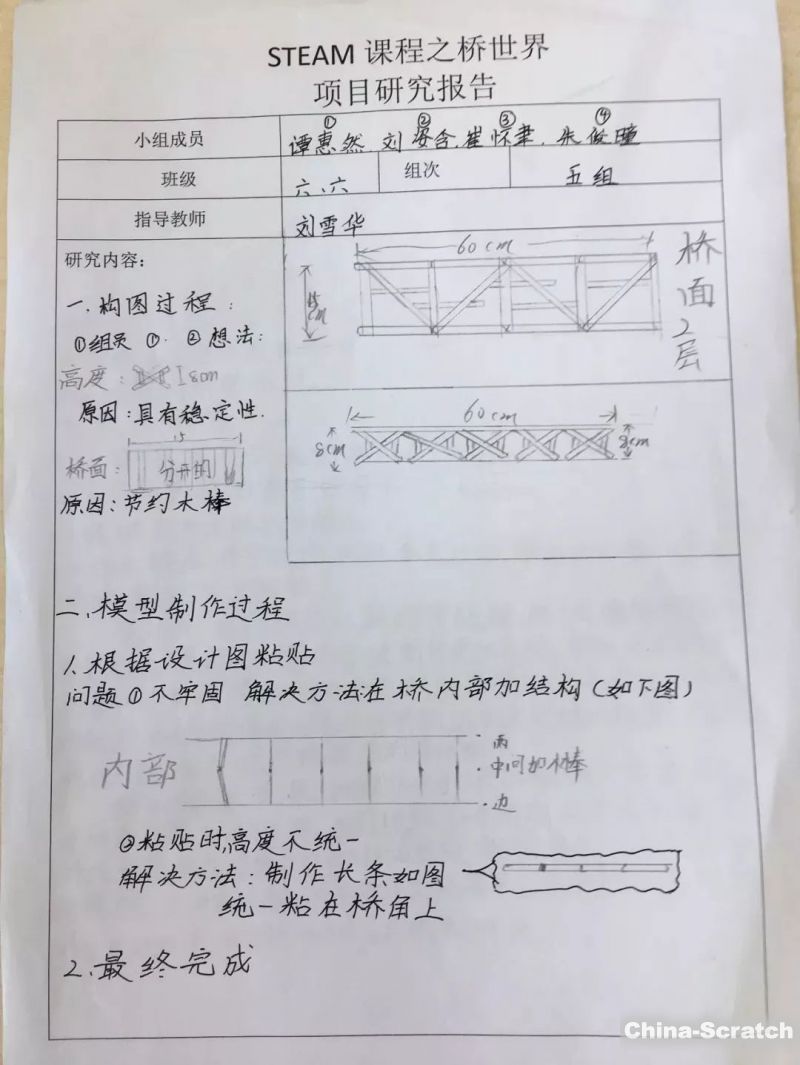 STEAM 课程之桥世界
项目研究报告
① ② ③ ④
小组成员 谭惠然 刘姿含 崔怀聿 朱俊瞳
班级 六、六 组次 五组
指导教师 刘雪华
研究内容:
一.构图过程:
①组员 ①. ②想法:
高度: 8cm
原因:具有稳定性.
15
桥面: 分开的
原因:节约木棒
60cm
15cm
桥面2层
60cm
8cm 8cm
二.模型制作过程
1.根据设计图粘贴
问题①不牢固 解决方法在桥内部加结构(如下图)
内部
两
中间加木棒
边
②粘贴时,高度不统一
解决方法:制作长条如图
统一粘在桥角上
2.最终完成
China-Scratch